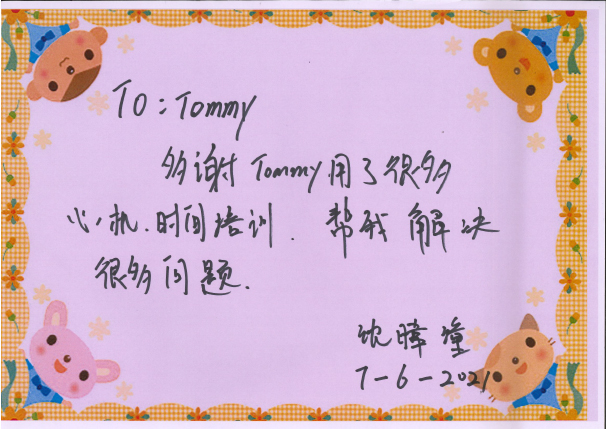 TO : Tommy
多谢 Tommy 用了很多
心机、时间培训、帮我解决
很多问题.
7-6-2021